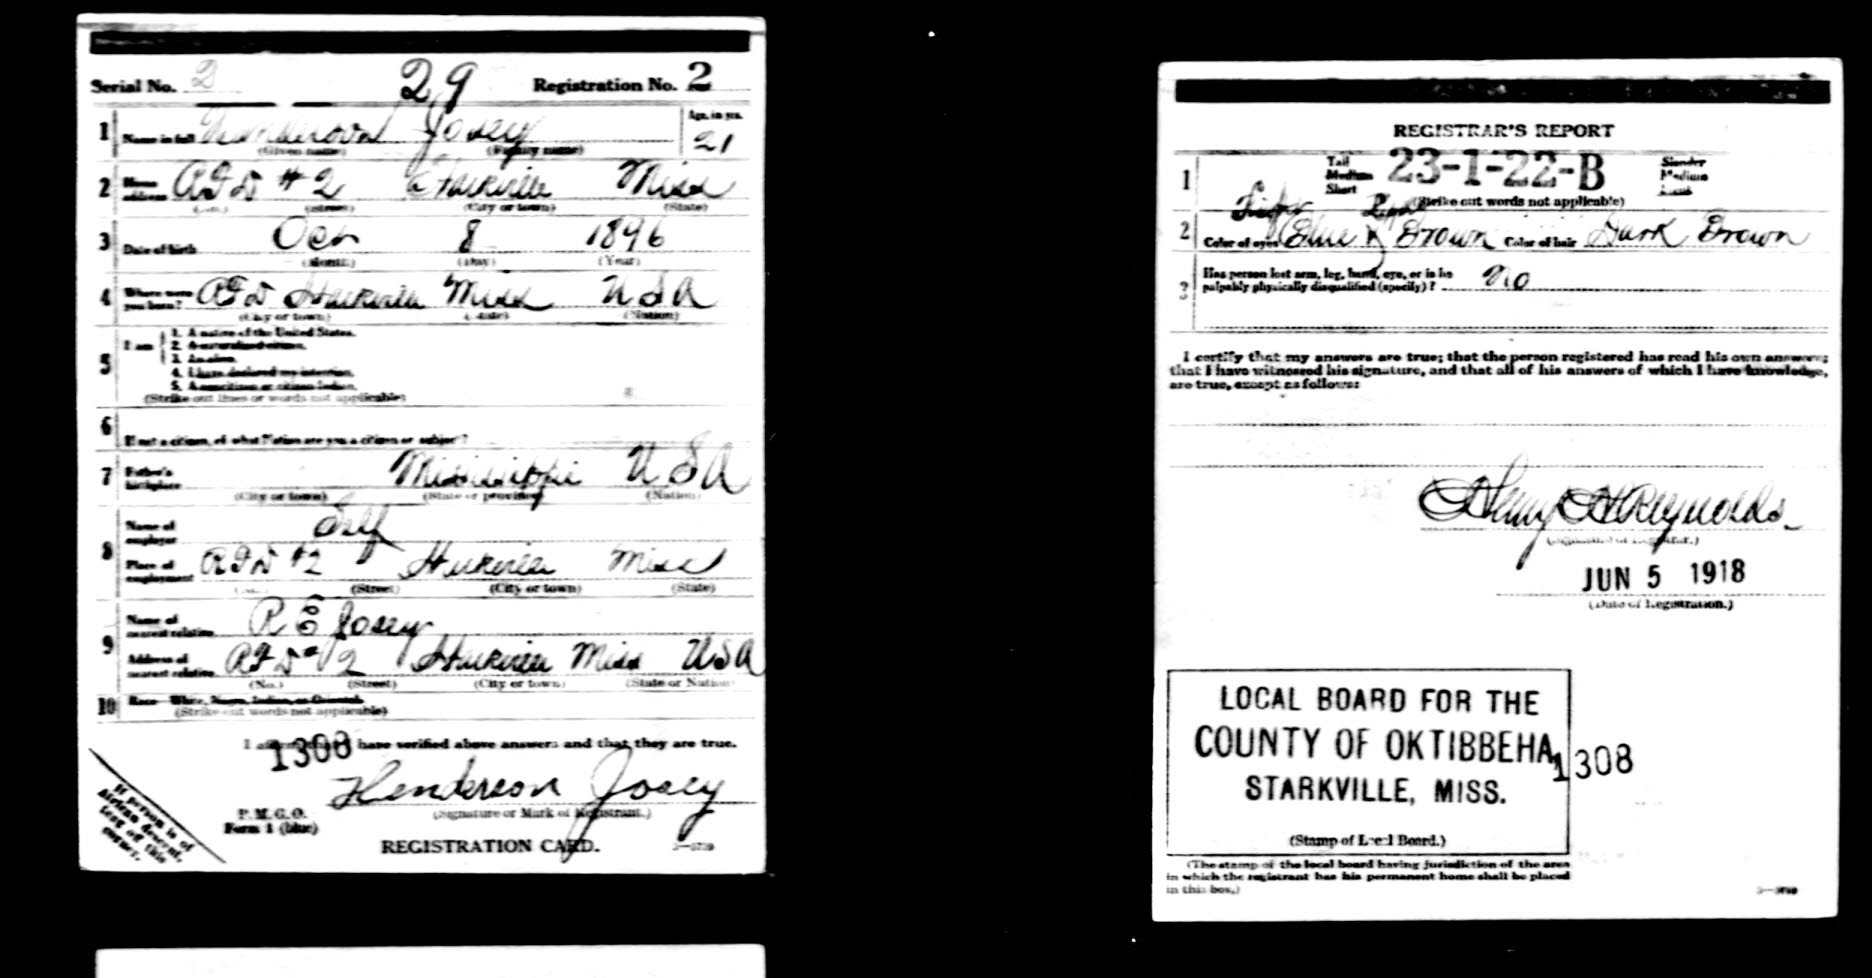 Serial No. 2 29 Registration No. 2
1 Name in full Henderson Josey Age, in yrs. 21
(Given name) (Family name)
2 Home address RFD #2 Starkville Miss
(No.) (Street) (City or town) (State)
3 Date of birth Oct 8 1896
(Month) (Day) (Year)
4 Where were you born? RFD Starkville Miss USA
(City or town) (State) (Nation)
5 I am
1. A native of the United States.
2. A naturalized citizen.
3. An alien.
4. I have declared my intention.
5. A noncitizen or citizen Indian.
(Strike out lines or words not applicable)
6 If not a citizen, of what Nation are you a citizen or subject?
7 Father's birthplace Mississippi USA
(City or town) (State or province) (Nation)
8 Name of employer Self
Place of employment RFD #2 Starkville Miss
(No.) (Street) (City or town) (State)
9 Name of nearest relative R E Josey
Address of nearest relative RFD #2 Starkville Miss USA
(No.) (Street) (City or town) (State or Nation)
10 Race—White, Negro, Indian, or Oriental.
(Strike out words not applicable)
I affirm that I have verified above answers and that they are true.
1308
Henderson Josey
(Signature or Mark of Registrant.)
P. M. G. O.
Form 1 (blue)
REGISTRATION CARD.
If person is of
African descent,
tear off this
corner.
REGISTRAR'S REPORT
23-1-22-B
1 Tall Slender
Medium Medium
Short Stout
(Strike out words not applicable)
2 Color of eyes Blue Brown Color of hair Dark Brown
3 Has person lost arm, leg, hand, eye, or is he
palpably physically disqualified (specify)? No
I certify that my answers are true; that the person registered has read his own answers;
that I have witnessed his signature, and that all of his answers of which I have knowledge,
are true, except as follows:
Henry H Reynolds
(Signature of Registrar.)
JUN 5 1918
(Date of Registration.)
LOCAL BOARD FOR THE
COUNTY OF OKTIBBEHA
1308
STARKVILLE, MISS.
(Stamp of Local Board.)
(The stamp of the local board having jurisdiction of the area
in which the registrant has his permanent home shall be placed
in this box.)